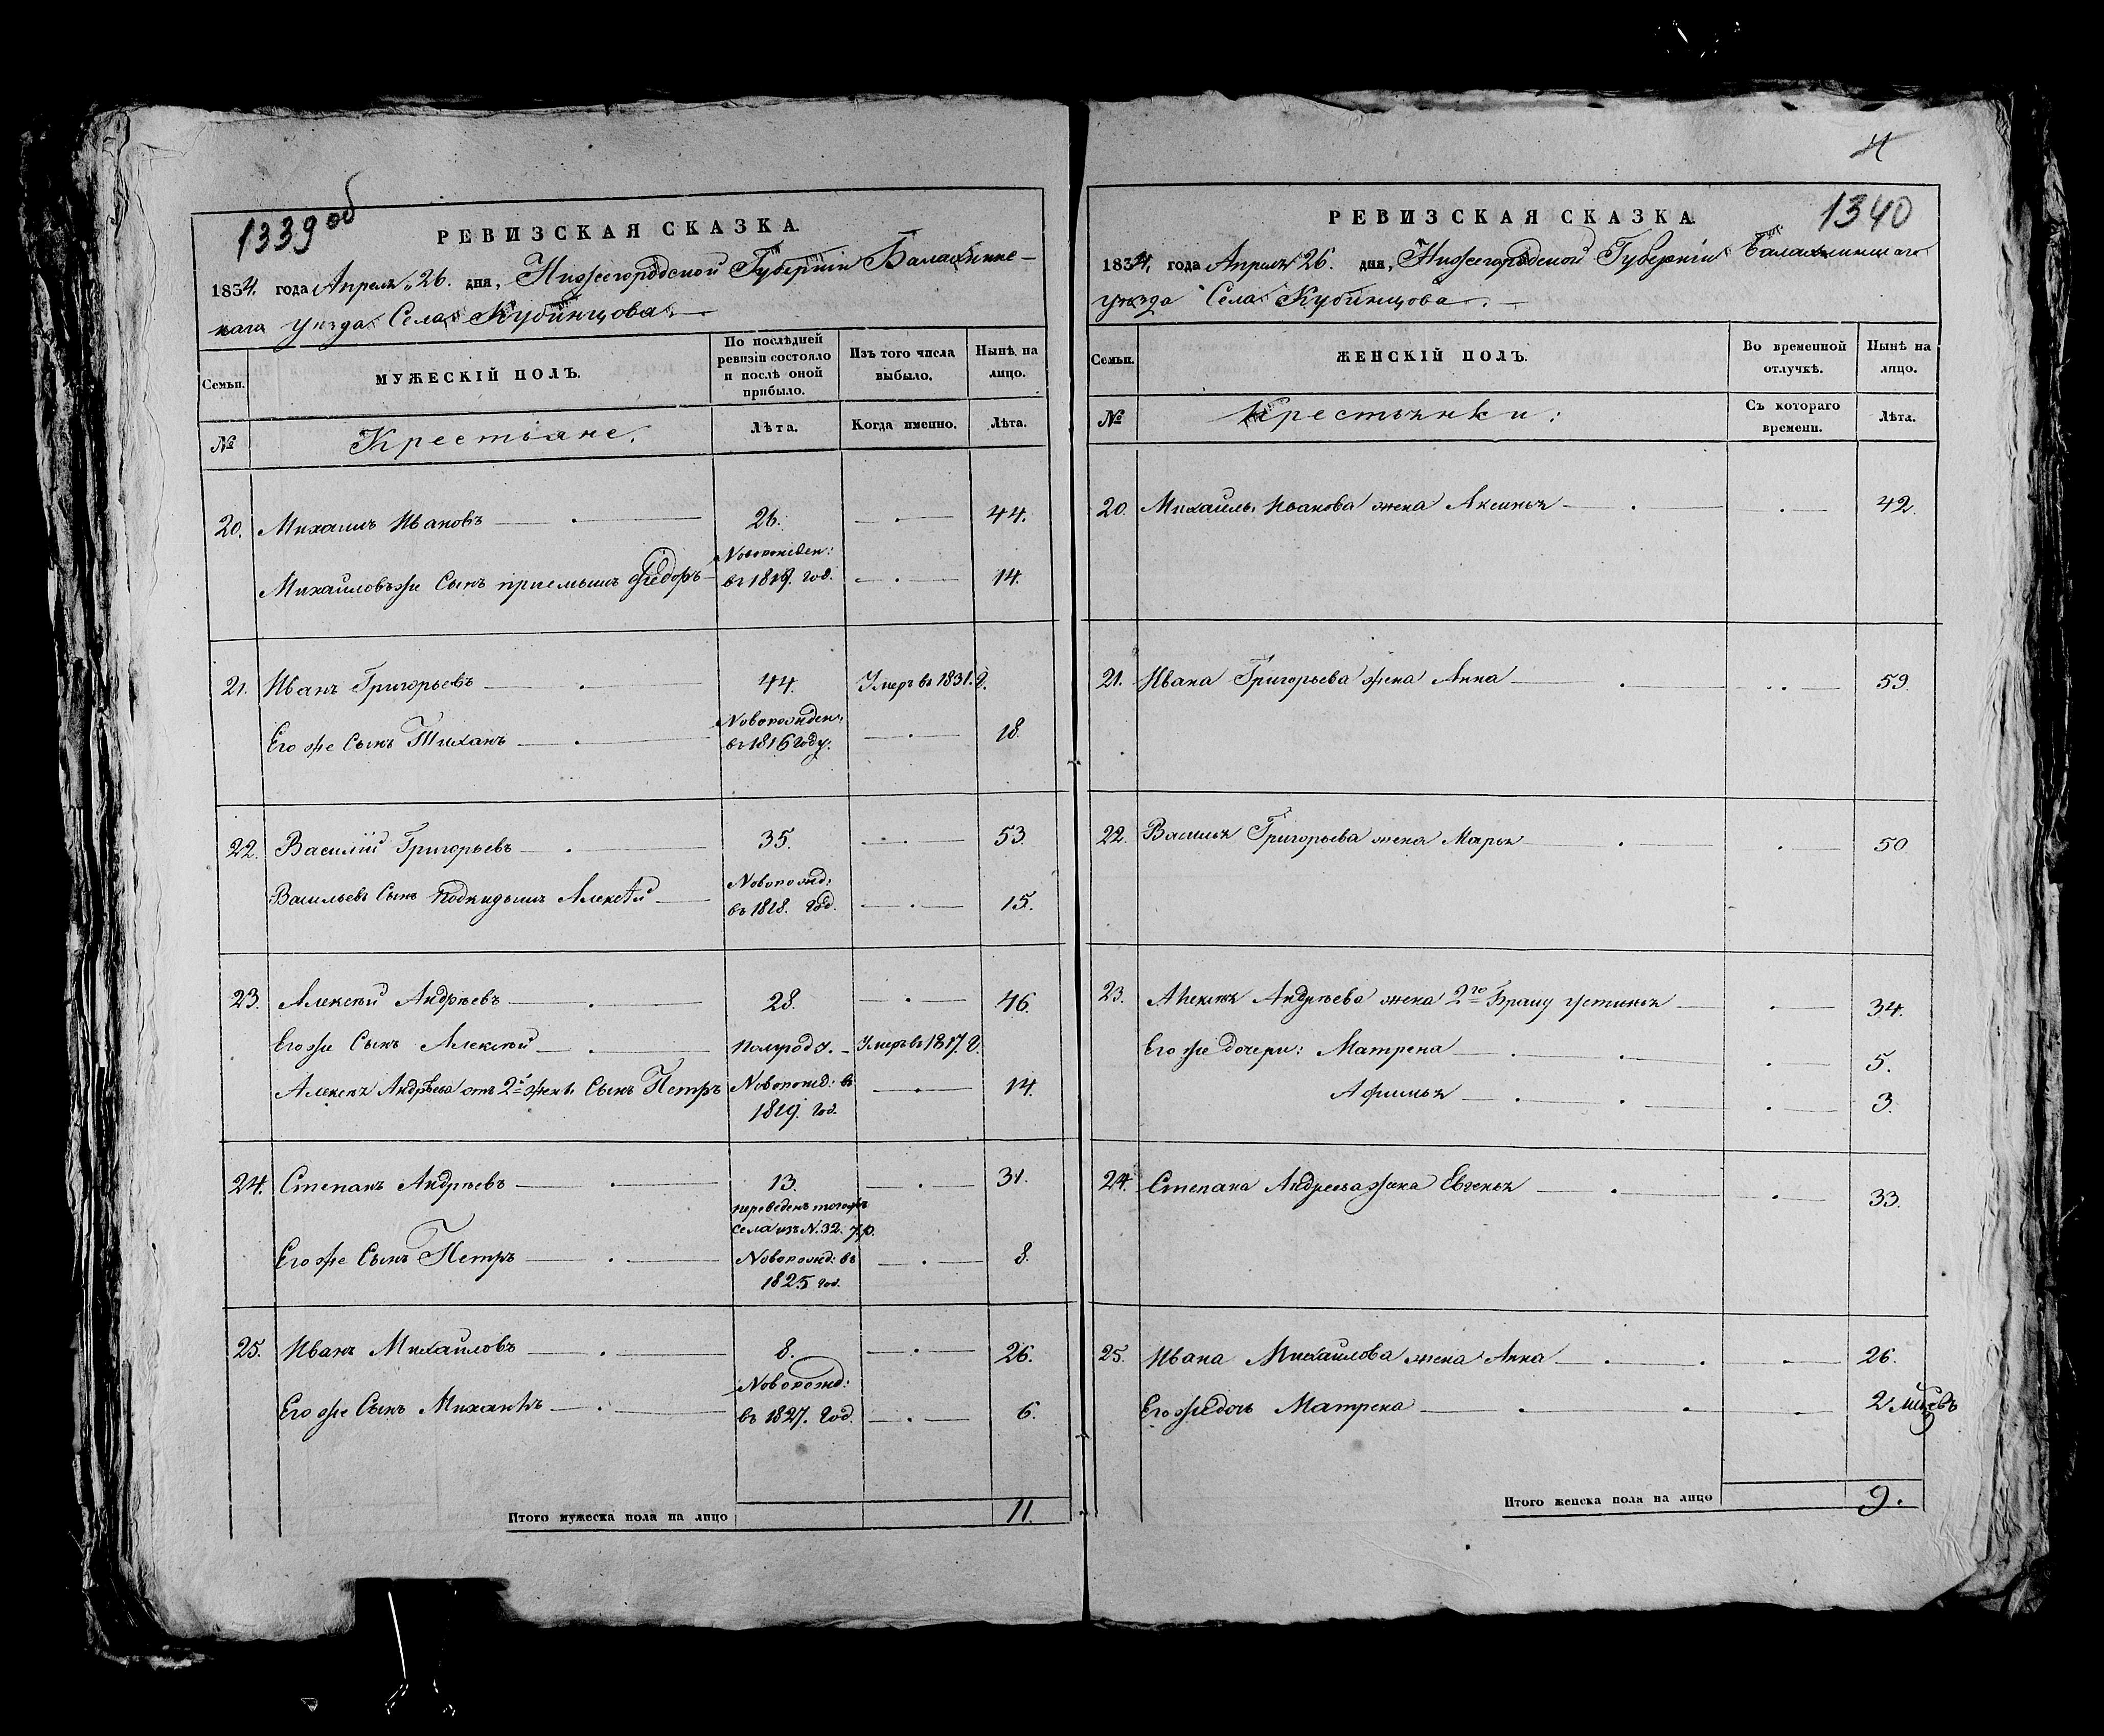 1339 об
РЕВИЗСКАЯ СКАЗКА.
1834. года Апреля 26. дня, Нижегородской Губернiи Балахнинс-
кага уезда Села Кубинцова
Семьи.
МУЖЕСКIЙ ПОЛЪ.
По послѣдней ревизiи состояло и послѣ оной прибыло.
Изъ того числа выбыло.
Нынѣ на лицо.
№
Крестьяне.
Лѣта.
Когда именно.
Лѣта.
20. Михаилъ Ивановъ 26. 44.
Новорожден:
Михайловъ же Сынъ приемышъ Федоръ въ 1819. год. 14.
21. Иванъ Григорьевъ 44. Умеръ въ 1831. г.
Новорожден:
Его же Сынъ Тиханъ въ 1816 году. 18.
22. Василiй Григорьевъ 35. 53.
Новорожд:
Васильевъ Сынъ подкидышъ Алексѣй въ 1818. год. 15.
23. Алексѣй Андрѣевъ 28. 46.
Его же Сынъ Алексѣй полугоду. Умеръ въ 1817. г.
Алексея Андрѣева отъ 2й жены Сынъ Петръ Новорожд: въ 14.
1819. год.
24. Степанъ Андрѣевъ 13. 31.
переведенъ тогожъ
села изъ N. 32.
Его же Сынъ Петръ Новорожд: въ 8.
1825 год.
25. Иванъ Михайловъ 8. 26.
Новорожд:
Его же Сынъ Миханъ въ 1827. год. 6.
Итого мужеска пола на лицо 11.
4
1340
РЕВИЗСКАЯ СКАЗКА.
1834. года Апреля 26. дня, Нижегородской Губернiи Балахнинскаго
уезда Села Кубинцова.
Семьи.
ЖЕНСКIЙ ПОЛЪ.
Во временной отлучкѣ.
Нынѣ на лицо.
№
Крестьянки:
Съ котораго времени.
Лѣта.
20. Михаила Иванова жена Аксинья 42.
21. Ивана Григорьева жена Анна 59.
22. Василья Григорьева жена Марья 50
23. Алексея Андрѣева жена 2го браку устинья 34.
Его же дочери: Матрена 5.
Афимья 3.
24. Степана Андреева жена Евгенья 33.
25. Ивана Михайлова жена Анна 26.
Его же дочь Матрена 2 мцевъ
Итого женска пола на лицо 9.